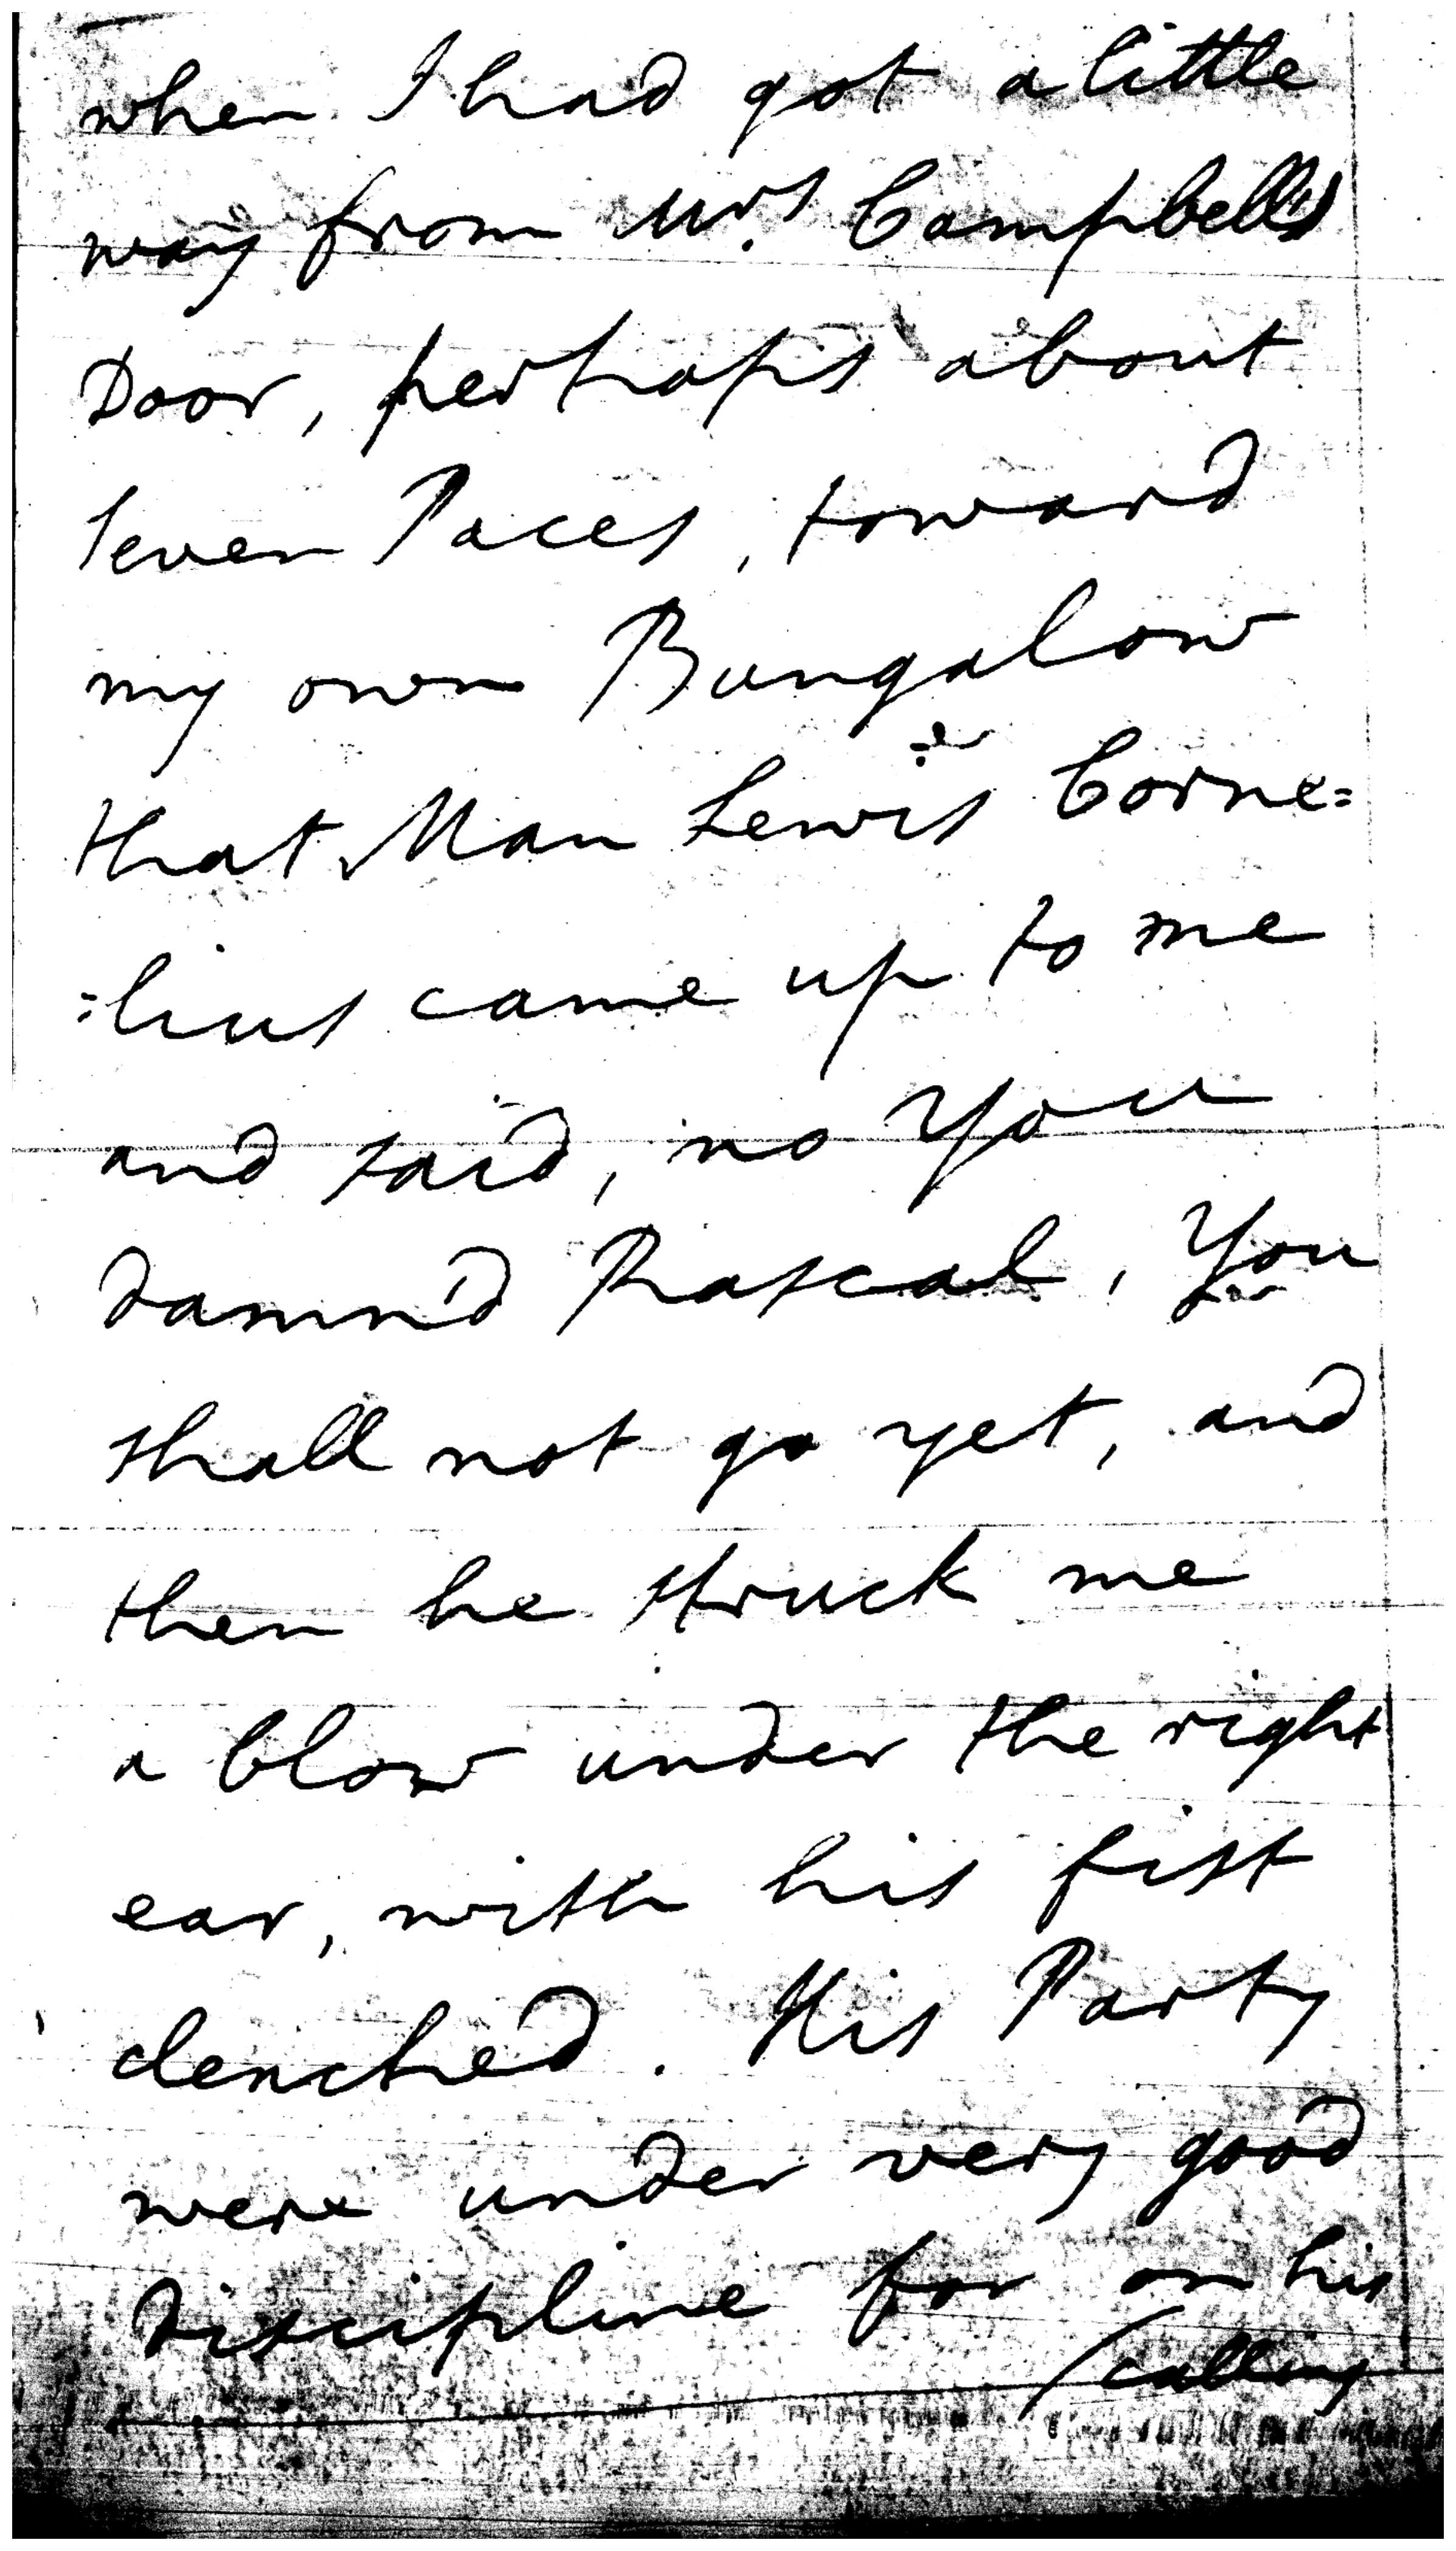 when I had got a little
way from Mrs. Campbell's
Door, perhaps about
seven Paces, toward
my own Bungalow
that Man Lewis Corne=
=lius came up to me
and said, no You
damn'd Rascal, You
shall not go yet, and
then he struck me
a blow under the right
ear, with his fist
clenched. His Party
were under very good
discipline for on his
calling